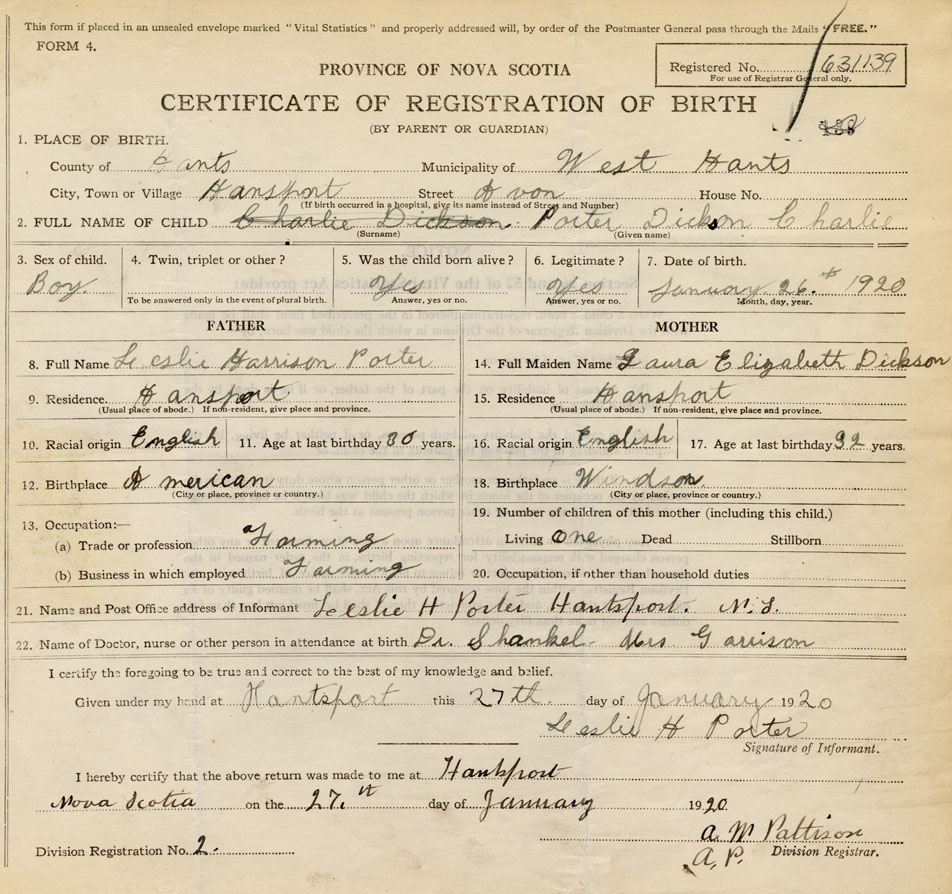 This form if placed in an unsealed envelope marked "Vital Statistics" and properly addressed will, by order of the Postmaster General pass through the Mails "FREE."
FORM 4.
Registered No. 631139
For use of Registrar General only.
PROVINCE OF NOVA SCOTIA
CERTIFICATE OF REGISTRATION OF BIRTH
(BY PARENT OR GUARDIAN)
1. PLACE OF BIRTH.
County of Hants Municipality of West Hants
City, Town or Village Hansport Street Avon House No.
(If birth occurred in a hospital, give its name instead of Street and Number)
2. FULL NAME OF CHILD Charlie Dickson Porter Dickson Charlie
(Surname) (Given name)
3. Sex of child. 4. Twin, triplet or other? 5. Was the child born alive? 6. Legitimate? 7. Date of birth.
Boy. Yes Yes January 26.th 1920
To be answered only in the event of plural birth. Answer, yes or no. Answer, yes or no. Month, day, year.
FATHER MOTHER
8. Full Name Leslie Harrison Porter 14. Full Maiden Name Laura Elizabeth Dickson
9. Residence. Hansport 15. Residence Hansport
(Usual place of abode.) If non-resident, give place and province. (Usual place of abode.) If non-resident, give place and province.
10. Racial origin English 11. Age at last birthday 30 years. 16. Racial origin English 17. Age at last birthday 32 years.
12. Birthplace American 18. Birthplace Windson
(City or place, province or country.) (City or place, province or country.)
13. Occupation:— 19. Number of children of this mother (including this child.)
(a) Trade or profession Farming Living One Dead Stillborn
(b) Business in which employed Farming 20. Occupation, if other than household duties
21. Name and Post Office address of Informant Leslie H Porter Hantsport. N.S.
22. Name of Doctor, nurse or other person in attendance at birth Dr. Shankel Mrs Garrison
I certify the foregoing to be true and correct to the best of my knowledge and belief.
Given under my hand at Hantsport this 27th. day of January 1920
Leslie H Porter
Signature of Informant.
I hereby certify that the above return was made to me at Hantsport
Nova Scotia on the 27.th day of January 1920.
A. M Pattison
A. P. Division Registrar.
Division Registration No. 2.